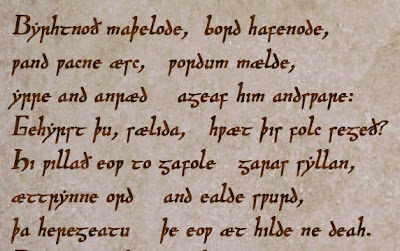 Bẏrhtnoð maþelode, bord hafenode,
ƿand ƿacne æsc, ƿordum mælde,
ẏrre and anræd ageaf him andsƿare:
Gehẏrst þu, sælida, hƿæt þis folc segeð?
Hi ƿillað eoƿ to gafole garas sẏllan,
ættrẏnne ord and ealde sƿurd,
þa heregeatu þe eoƿ æt hilde ne deah.